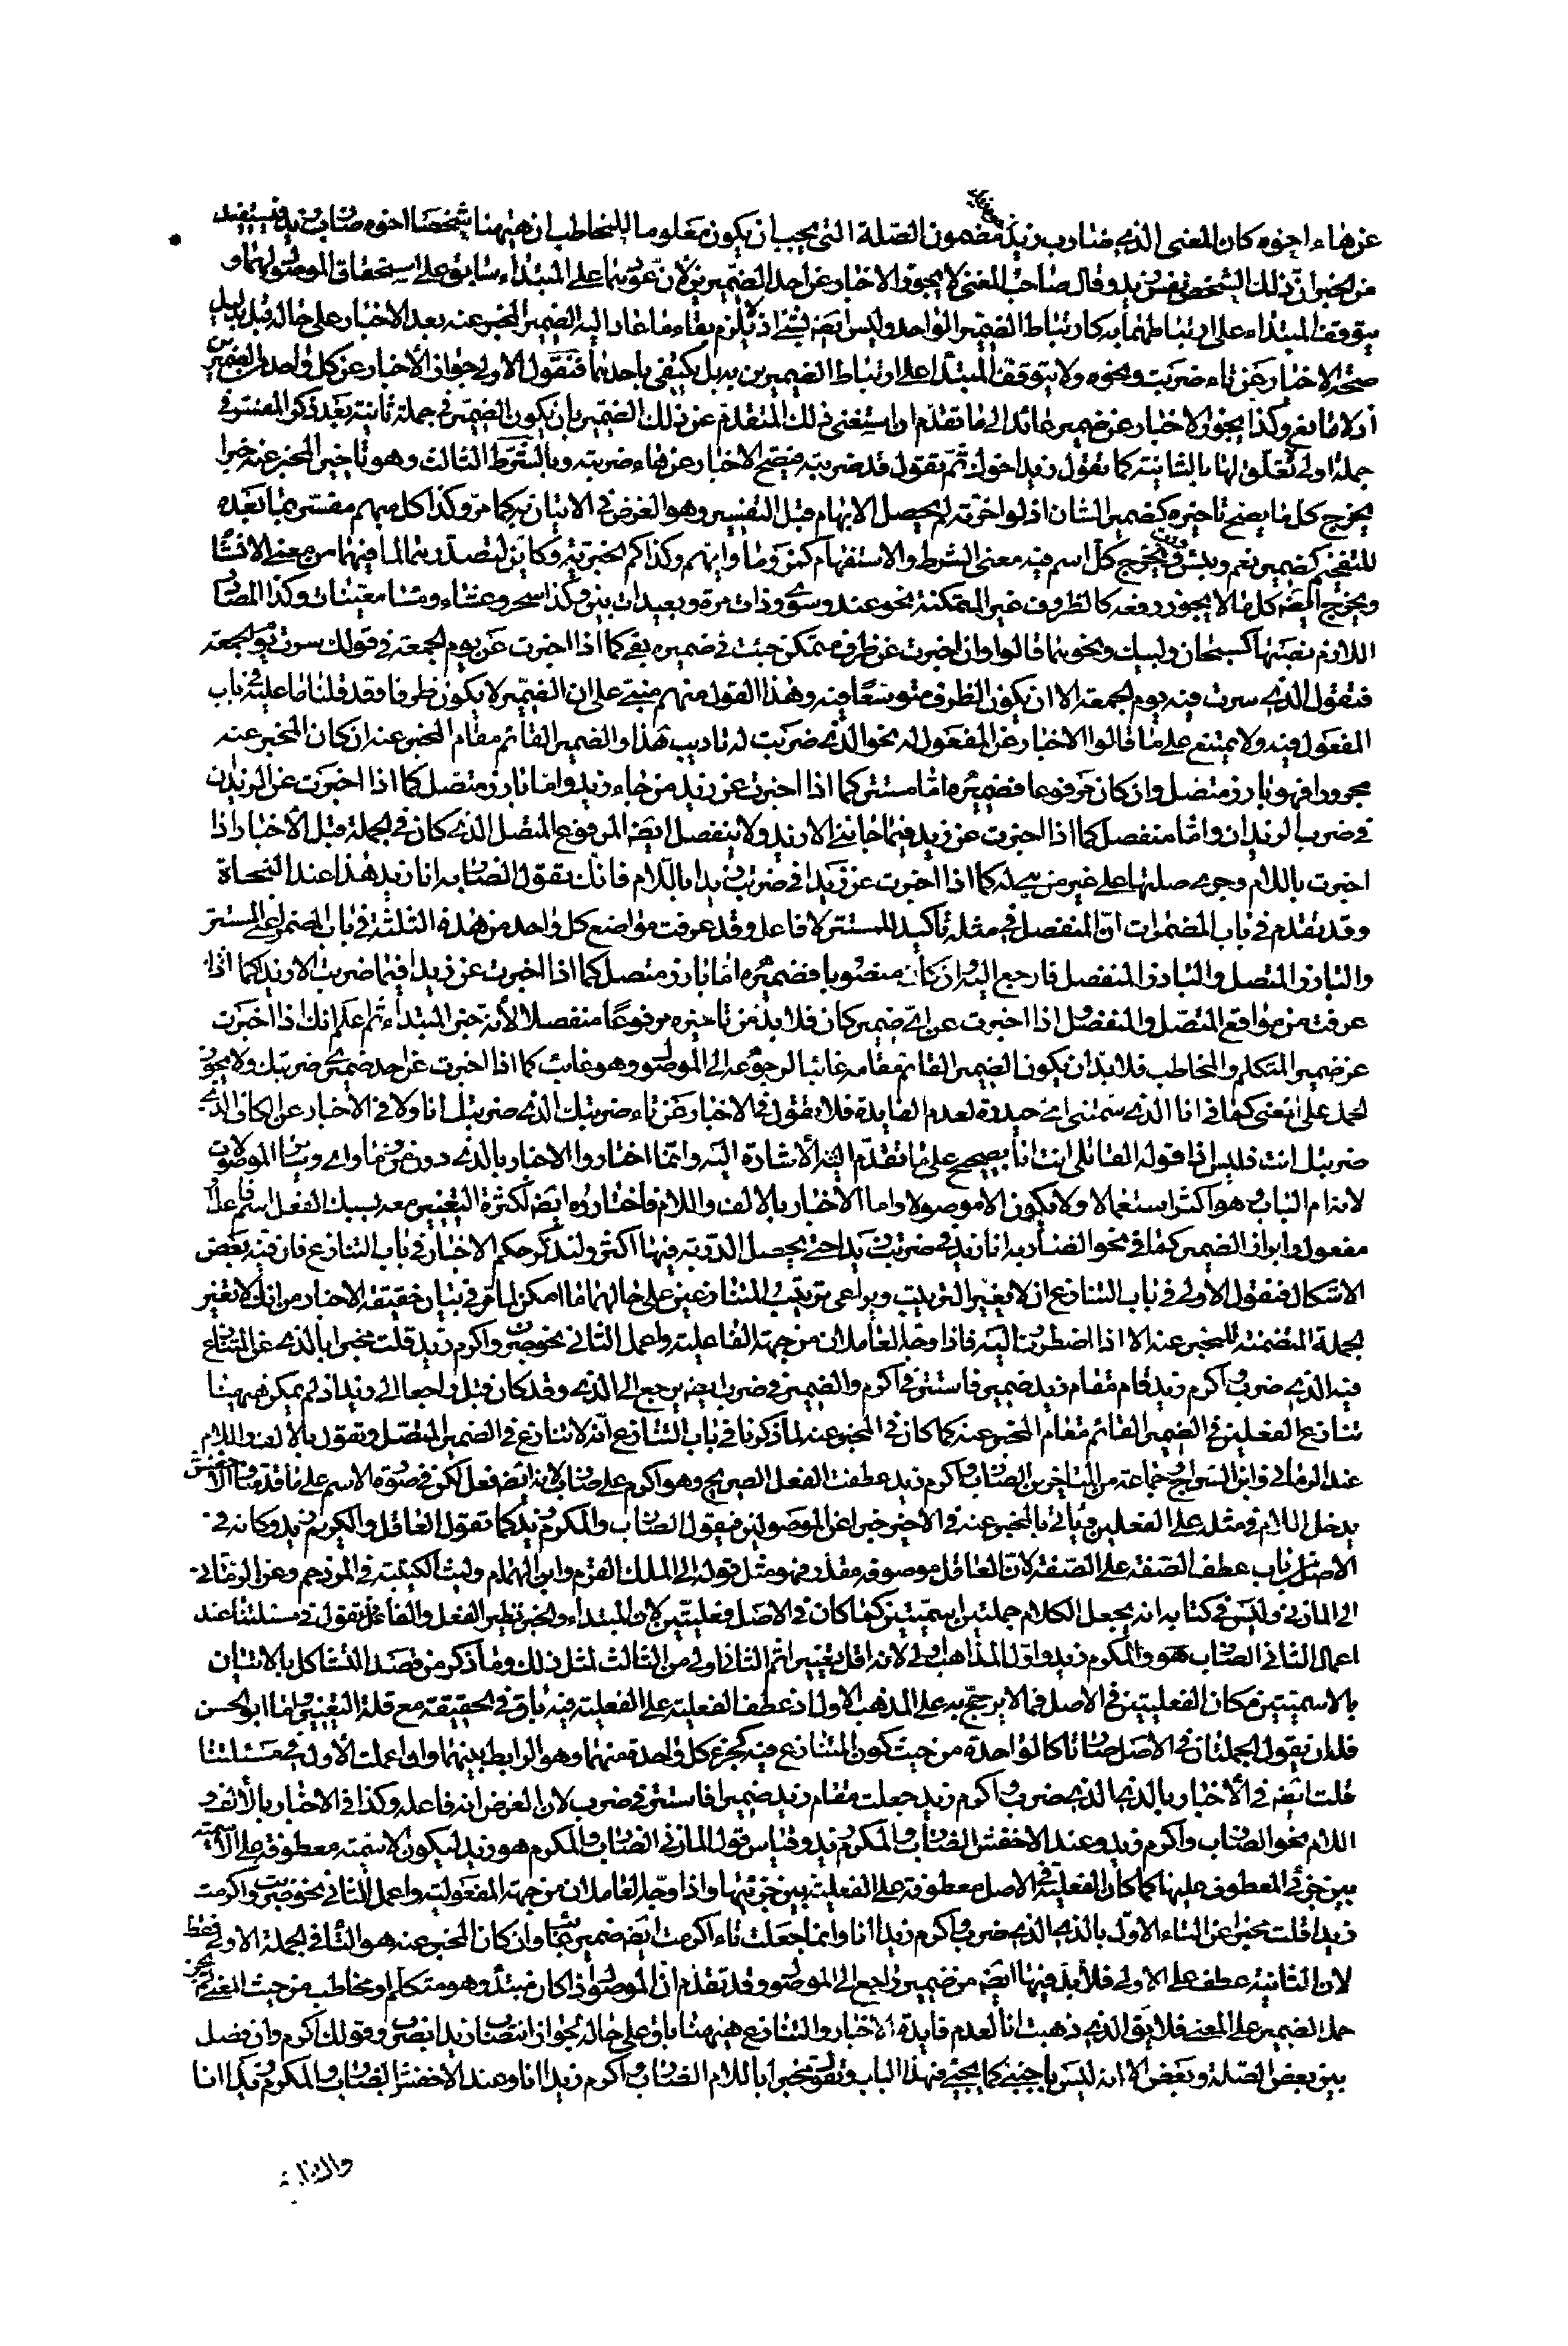 عن هاء اخوه كان المعنى الذى ضارب زيد مضمون الصلة التى يجب ان يكون معلوما للمخاطب ان ههنا شخصا اخوه ضارب زيد فيستفيد
من الخبر ان ذلك الشخص نفس زيد وقال صاحب المغنى لا يجوز الاخبار عن احد الضميرين لان عودهما على المبتداء سابق على استحقاق الموصول لهما و
يتوقف المبتداء على ارتباطهما به كارتباط الضمير الواحد وليس ايضه بشئ اذ لا يلزم بقاء ما عاد اليه الضمير المخبر عنه بعد الاخبار على حاله قبل بدليل
صحة الاخبار عن تاء ضربت ونحوه ولا يتوقف المبتدا على ارتباط الضميرين به بل يكتفى باحدهما فنقول الاولى جواز الأخبار عن كل واحد من الضميرين
اذ لا مانع وكذا يجوز الاخبار عن ضمير عائد الى ما تقدم ان استغنى ذلك المتقدم عن ذلك الضمير بان يكون الضمير فى جملة ثانية بعد ذكر المفسر فى
جملة اولى لا تعلق لها بالثانية كما تقول زيد اخوك ثم تقول قد ضربته فيصح الاخبار عن هاء ضربته وبالشرط الثالث وهو تاخير المخبر عنه خبرا
يخرج كل ما يصح تاخيره كضمير الشان اذ لو اخرته لم يحصل الابهام قبل التفسير وهو الغرض فى الاتيان به كما مر وكذا كل مبهم مفسر بما بعده
للتفخيم كضمير نعم وبئس ورب ويخرج كل اسم فيه معنى الشرط والاستفهام كمن وما وايهم وكذا كم الخبرية وكاين لتصدرهما لما فيهما من معنى الانشاء
ويخرج ايضه كل ما لا يجوز رفعه كالظروف غير المتمكنة نحو عند وسوى وذات مرة وبعيدات بين وكذا سحر وعشاء ومسا معينات وكذا المصادر
اللازم نصبها كسبحان ولبيك ونحوهما قالوا وان اخبرت عن ظرف متمكن جئت فى ضميره بفى كما اذا اخبرت عن يوم الجمعة فى قولك سرت يوم الجمعة
فتقول الذى سرت فيه يوم الجمعة الا ان يكون الظرف متوسعا فيه وهذا القول منهم مبنى على ان الضمير لا يكون ظرفا وقد قلنا ما عليه فى باب
المفعول فيه ولا يمتنع على ما قالوا الاخبار عن المفعول له نحو الذى ضربت له تاديب هذا والضمير القائم مقام المخبر عنه ان كان المخبر عنه
مجرورا فهو بارز متصل وان كان مرفوعا فضميره اما مستتر كما اذا اخبرت عن زيد من جاء زيد واما بارز متصل كما اذا اخبرت عن الزيدان
فى ضرب الزيدان واما منفصل كما اذا اخبرت عن زيد فيما جاءنى الا زيد ولا ينفصل ايضه المرفوع المتصل الذى كان فى الجملة قبل الأخبار اذا
اخبرت باللام وجرى صلتها على غير من هى له كما اذا اخبرت عن زيدا فى ضربت زيدا باللام فانك تقول الضاربه انا زيد هذا عند النحاة
وقد تقدم فى باب المضمرات ان المنفصل فى مثله تأكيد للمستتر لا فاعل وقد عرفت مواضع كل واحد من هذه الثلثة فى باب المضمر اعنى المستتر
والبارز المتصل والبارز المنفصل فارجع اليه وان كان منصوبا فضميره اما بارز متصل كما اذا اخبرت عن زيدا فيما ضربت الا زيدا كما اذا
عرفت من مواقع المتصل والمنفصل اذا اخبرت عن اى ضمير كان فلا بد من تاخيره مرفوعا منفصلا لأنه خبر المبتداء ثم اعلم انك اذا اخبرت
عن ضمير المتكلم والمخاطب فلا بد ان يكون الضمير القائم مقامه غائبا لرجوعه الى الموصول وهو غائب كما اذا اخبرت عن احد ضميرى ضربتك ولا يجوز
الحمل على المعنى كما فى انا الذى سمتنى امى حيدرة لعدم الفايدة فلا تقول فى الاخبار عن تاء ضربتك الذى ضربتك انا ولا فى الأخبار عن الكاف الذى
ضربتك انت فليس اذا قوله القائلى انت انا بصحيح على ما تقدم الثه الأشارة اليه وانما اختاروا الاخبار بالذى دون من وما واى وسائر الموصولات
لانه ام الباب هو اكثر استعمالا ولا يكون الا موصولا واما الأخبار بالالف واللام فاختاروه ايضه لكثرة التغيير معه بسبك الفعل اسم فاعل او
مفعول وابراز الضمير كما فى نحو الضاربه انا زيد فى ضربت زيدا حتى يحصل الدربة فيها اكثر ولنذكر حكم الاخبار فى باب التنازع فان فيه بعض
الاشكال فنقول الاولى فى باب التنازع ان لا يغير الترتيب ويراعى ترتيب المتنازعين على حالهما ما امكن لما مر فى بيان حقيقة الاخبار من انك لا تغير
الجملة المتضمنة للمخبر عنه الا اذا اضطررت اليه فاذا وجه العاملان من جهة الفاعلية واعمل الثانى نحو ضرب واكرم زيد قلت مخبرا بالذى عن المتنازع
فيه الذى ضرب واكرم زيد قام مقام زيد ضمير فاستتر فى اكرم والضمير فى ضرب ايضه يرجع الى الذى وقد كان قبل راجعا الى زيد اذ لم يمكن ههنا
تنازع الفعلين فى الضمير القائم مقام المخبر عنه كما كان فى المخبر عنه لما ذكرنا فى باب التنازع انه لا تنازع فى الضمير المتصل وتقول بالألف واللام
عند الرمانى وابن السراج وجماعة من المتاخرين الضارب واكرم زيد عطفت الفعل الصريح وهو اكرم على ضارب لانه ايضه فعل لكن فى صورة الاسم على ما قدمنا والأخفش
يدخل اللام فى مثله على الفعلين وياتى بالمخبر عنه فى الأخير خبرا عن الموصولين فيقول الضارب والمكرم زيد كما تقول العاقل والكريم زيد وكانه فى
الاصل من باب عطف الصفة على الصفة لان العاقل موصوفه مقدر فهو مثل قوله الى الملك القرم وابن الهمام وليث الكتيبة فى المزدحم وعزى الرمانى
الى المازنى وليس فى كتابه انه يجعل الكلام جملتين اسميتين كما كان فى الاصل فعليتين لان المبتداء والخبر نظير الفعل والفاعل فيقول فى مسئلتنا عند
اعمال الثانى الضارب هو والمكرم زيد واول المذاهب اولى لانه اقل تغييرا ثم الثانى اولى من الثالث لمثل ذلك وما ذكر من قصد التشاكل بالاتيان
بالاسميتين مكان الفعليتين فى الاصل فما لا يرجح به على المذهب الاول اذ عطف الفعلية على الفعلية فيه باق فى الحقيقة مع قلة التغيير واما ابو الحسن
فله ان يقول الجملتان فى الاصل صارتا كالواحدة من حيث كون المتنازع فيه كجزء كل واحدة منهما وهو الرابط بينهما وان اعملت الأول فى مسئلتنا
قلت ايضه فى الأخبار بالذى الذى ضرب واكرم زيد جعلت مقام زيد ضميرا فاستتر فى ضرب لان الغرض انه فاعله وكذا فى الاخبار بالألف و
اللام نحو الضارب واكرم زيد وعند الاخفش الضارب والمكرم زيد وقياس قول المازنى الضارب والمكرم هو زيد ليكون الاسمية معطوفة على الاسمية
بين جزئى المعطوف عليها كما كان الفعلية فى الاصل معطوفة على الفعلية بين جزئيها واذا وجه العاملان من جهة المفعولية واعمل الثانى نحو ضربت واكرمت
زيدا قلت مخبرا عن التاء الاول بالذى الذى ضرب واكرم زيدا انا وانما جعلت تاء اكرمت ايضه ضمير غائب وان كان المخبر عنه هو التاء فى الجملة الاولى فقط
لان الثانية عطف على الاولى فلا بد فيها ايضه من ضمير راجع الى الموصول وقد تقدم ان الموصول اذا كان مبتدأ وهو متكلم او مخاطب من حيث المعنى لم يجز
حمل الضمير على المعنى فلا يق الذى ذهبت انا لعدم فايدة الاخبار والتنازع ههنا باق على حاله لجواز انتصاب زيدا بضرب وقولك اكرم وان فصل
بين بعض الصلة وبعض الا انه ليس باجنبى كما يجئ فى هذا الباب وتقول مخبرا باللام الضارب واكرم زيدا انا وعند الاخفش الضارب والمكرم زيدا انا